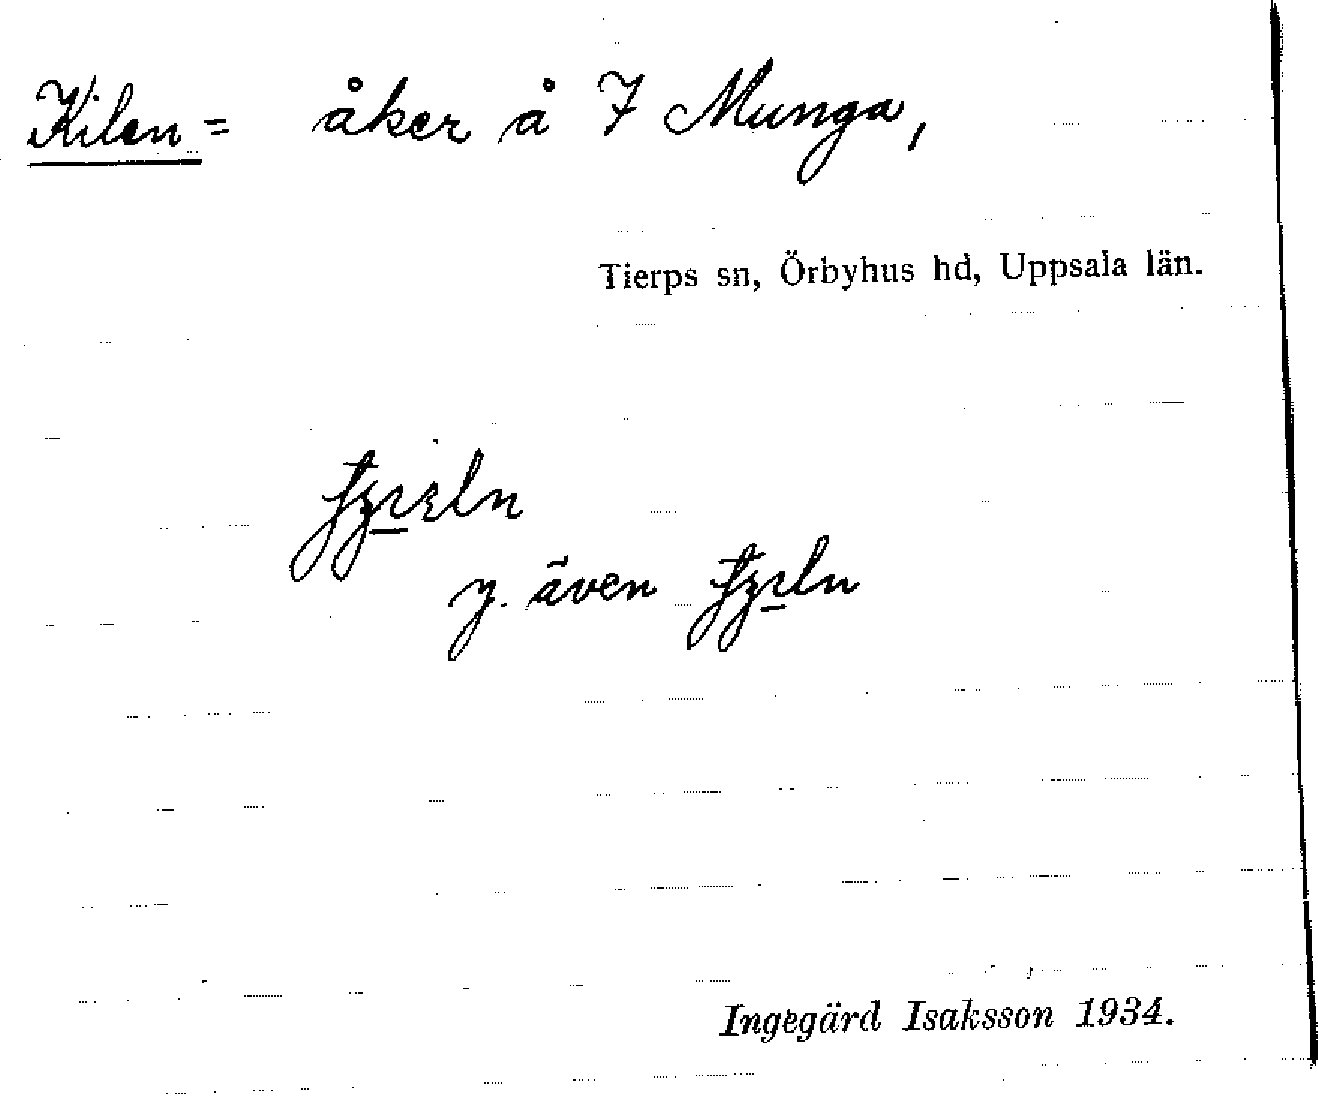 Kilen = åker å 7 Munga,
Tierps sn, Örbyhus hd, Uppsala län.
y. även
Ingegärd Isaksson 1934.